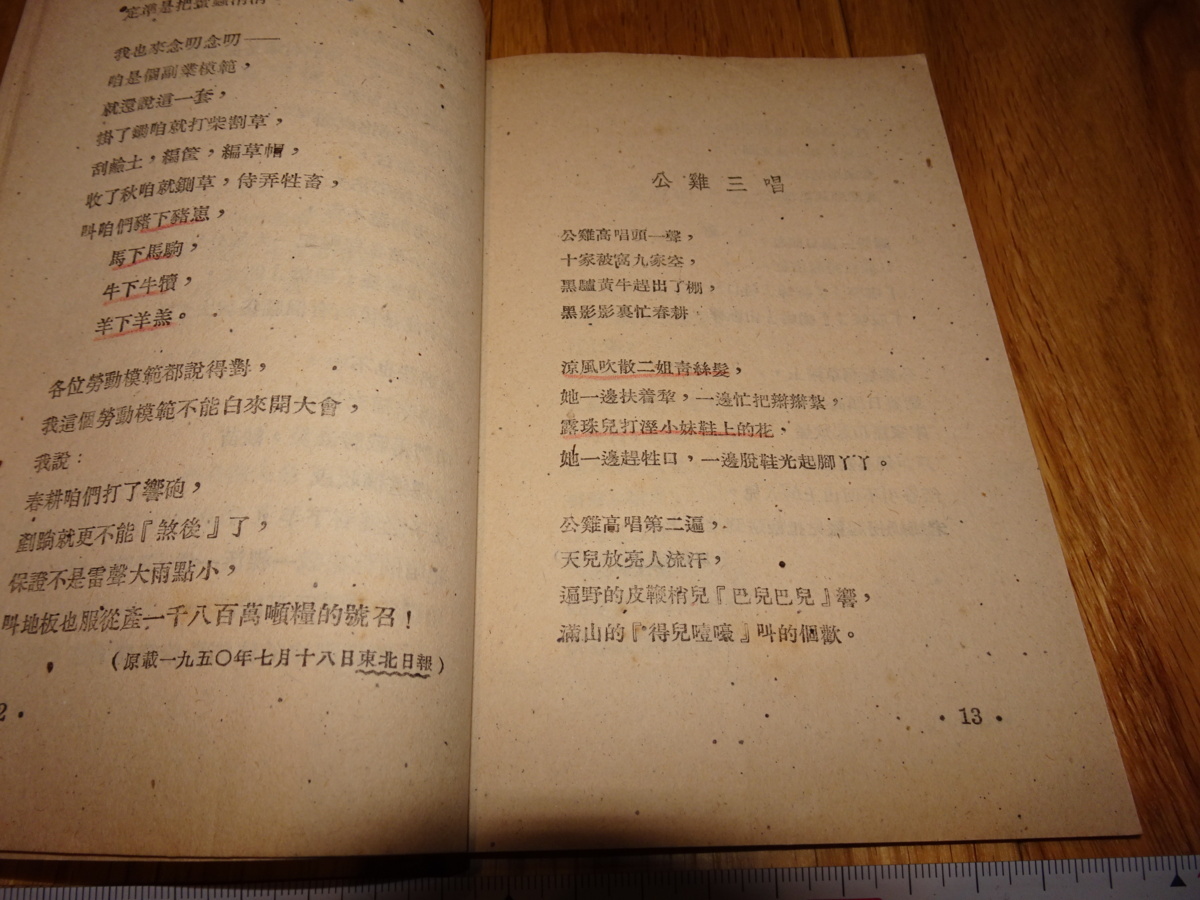 我也來念叨念叨——
咱是個副業模範，
就還說這一套，
掛了鋤咱就打柴割草，
刮鹼土，編筐，編草帽，
收了秋咱就鍘草，侍弄牲畜，
叫咱們豬下豬崽，
馬下馬駒，
牛下牛犢，
羊下羊羔。
各位勞動模範都說得對，
我這個勞動模範不能白來開大會，
我說：
春耕咱們打了響砲，
剷蹚就更不能『煞後』了，
保證不是雷聲大雨點小，
叫地板也服從產一千八百萬噸糧的號召！
（原載一九五〇年七月十八日東北日報）
2 •
公雞三唱
公雞高唱頭一聲，
十家被窩九家空，
黑驢黃牛趕出了棚，
黑影影裏忙春耕，
涼風吹散二姐青絲髮，
她一邊扶着犂，一邊忙把辮辮紮，
露珠兒打溼小妹鞋上的花，
她一邊趕牲口，一邊脫鞋光起腳丫丫。
公雞高唱第二遍，
天兒放亮人流汗，
遍野的皮鞭梢兒『巴兒巴兒』響，
滿山的『得兒噎嚎』叫的個歡。
• 13 •